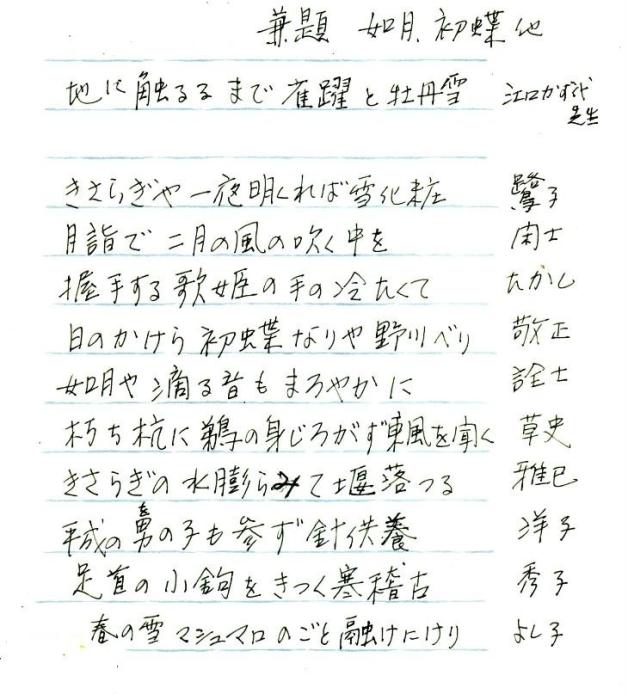 兼題 如月、初蝶他
地に触るるまで雀躍と牡丹雪 江口かずよ先生
きさらぎや一夜明くれば雪化粧 鷺子
月詣で二月の風の吹く中を 闲士
握手する歌姫の手の冷たくて たかし
日のかけら初蝶なりや野川べり 敬正
如月や滴る音もまろやかに 詮士
朽ち杭に鵜の身じろがず東風を聞く 草史
きさらぎの水膨らみて堰落つる 雅巳
平成の男の子も参ず針供養 洋子
足首の小鉤をきつく寒稽古 秀子
春の雪マシュマロのごと融けにけり よし子